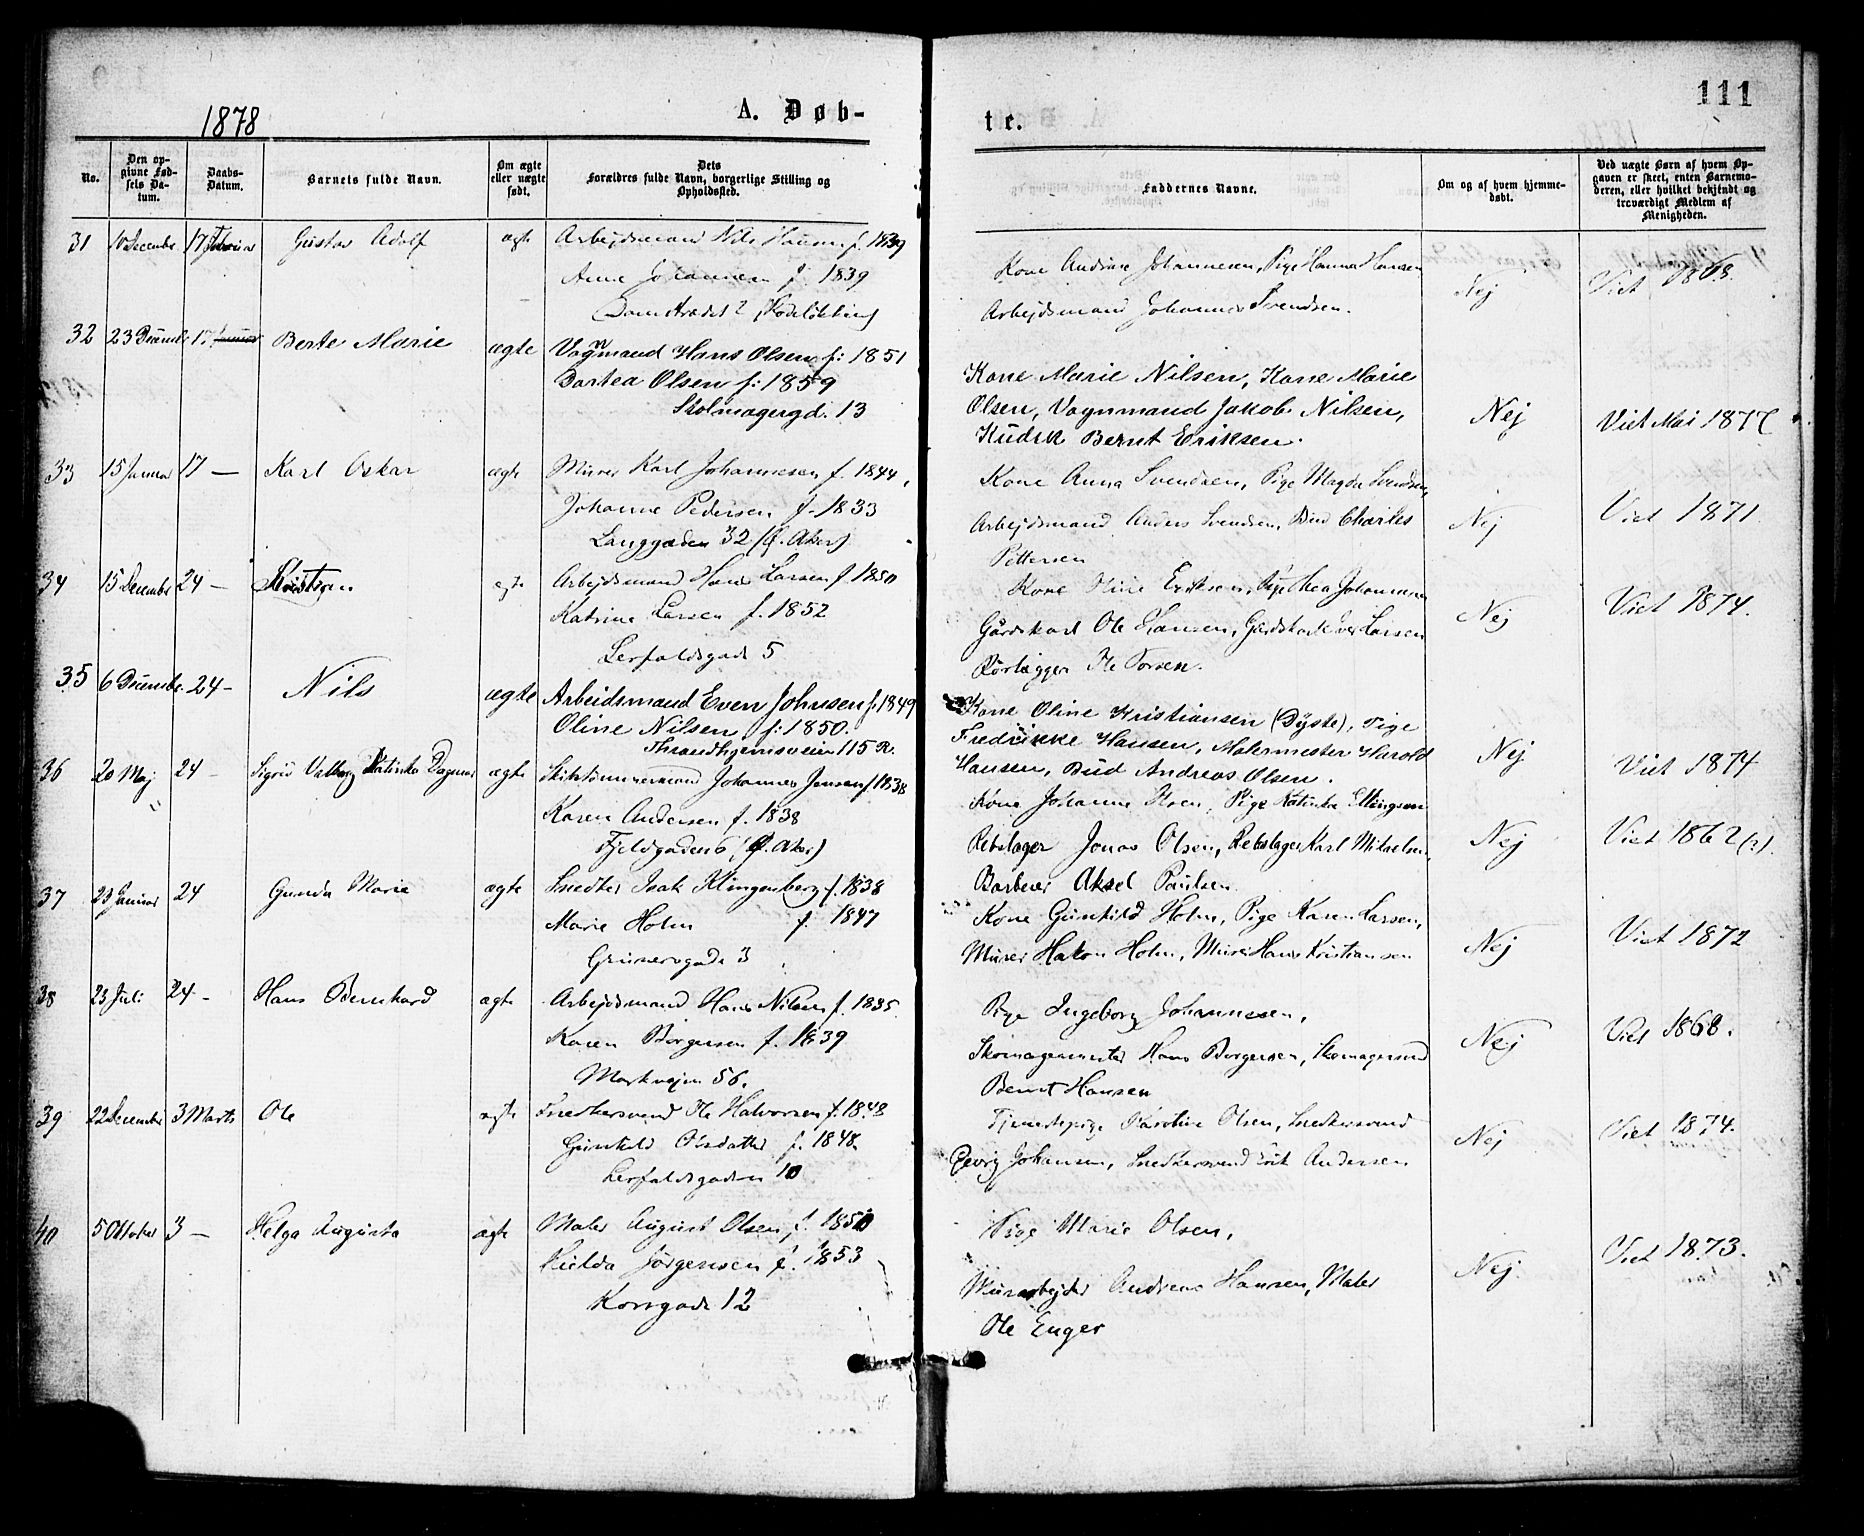 111
1878
A. Døb-
te.
No.
Den op-
givne Fød-
sels Da-
tum.
Daabs-
Datum.
Barnets fulde Navn.
Om ægte
eller uægte
født.
Dets
Forældres fulde Navn, borgerlige Stilling og
Opholdssted.
Faddernes Navne.
Om og af hvem hjemme-
døbt.
Ved uægte Børn af hvem Op-
gaven er skeet, enten Barnemo-
deren, eller hvilket bekjendt og
troværdigt Medlem af
Menigheden.
31 10 Decembr. 17 Gustav Adolf ægte Arbejdsmand Nils Hansen f. 1839
Anne Johannesen f. 1839
Kone Andrine Johannesen, Pige Hanna Hansen
Arbejdsmand Johannes Svendsen.
Nej
Viet 1863.
32 23 Decembr 17 Berte Marie ægte Vognmand Hans Olsen f: 1851
Bartea Olsen f: 1859
Stolmagergd. 13
Kone Marie Nilsen, Kone Marie
Olsen, Vognmand Jakob Nilsen,
Kudsk Bernt Eriksen.
Nej
Viet Mai 1877
33 15 Januar 17 — Karl Oskar ægte Murer Karl Johannesen f. 1844,
Johanne Pedersen f. 1833
Langgaden 32 (G. Aker)
Kone Anna Svendsen, Pige Magda Svendsen,
Arbejdsmand Anders Svendsen, Bud Charles
Pettersen
Nej
Viet 1871.
34 15 December 24 — Kristian ægte Arbejdsmand Hans Larsen f. 1850
Katrine Larsen f. 1852
Lerfaldsgade 5
Kone Oline Eriksen, Pige Thea Johannesen
Gårdskarl Ole Hansen, Gårdskarl Iver Larsen
Rørlægger Ole Torsen.
Nej
Viet 1874.
35 6 Decembr. 24 — Nils ægte Arbeidsmand Even Johnsen f. 1849
Oline Nilsen f: 1850.
Throndhjemsveien 115 R.
Kone Oline Kristiansen (Byste), Pige
Fredrikke Hansen, Malermester Harold
Hansen, Bud Andreas Olsen.
Nej
Viet 1874
36 20 Maj 24 — Sigrid Valborg Katinka Dagmar ægte Skibstømmermand Johannes Jensen f. 1838
Karen Andersen f. 1838
Fjeldgaden 6 (G. Aker)
Kone Johanne Olsen, Pige Katinka Ellingsen
Rebslager Jonas Olsen, Rebslager Karl Mikaelsen,
Barberer Aksel Paulsen.
Nej
Viet 1862 (?).
37 23 Januar 24 Gunda Marie ægte Snedker Isak Klingenberg f. 1838
Marie Holm f. 1847
Grünersgade 3
Kone Gunhild Holm, Pige Karen Larsen,
Murer Hakon Holm, Murer Hans Kristiansen
Nej
Viet 1872
38 23 Juli 24 — Hans Bernhard ægte Arbejdsmand Hans Nilsen f. 1835.
Karen Børgersen f. 1839
Markvejen 56.
Pige Ingeborg Johannesen,
Skomagermester Hans Borgersen, Skomagersvend
Bernt Hansen
Nej
Viet 1868.
39 22 December 3 Marts Ole ægte Snedkersvend Ole Halvorsen f. 1848
Gunhild Olsdatter f. 1848.
Lerfaldsgaden 10
Tjenestepige Karoline Olsen, Snedkersvend
Georg Johansen, Snedkersvend Erik Andersen
Nej
Viet 1874.
40 5 Oktober 3 — Helga Augusta ægte Maler August Olsen f. 1850
Hilda Jørgensen f. 1853
Korsgade 12
Pige Marie Olsen,
Murarbejder Andreas Hansen, Maler
Ole Enger
Nej.
Viet 1873.